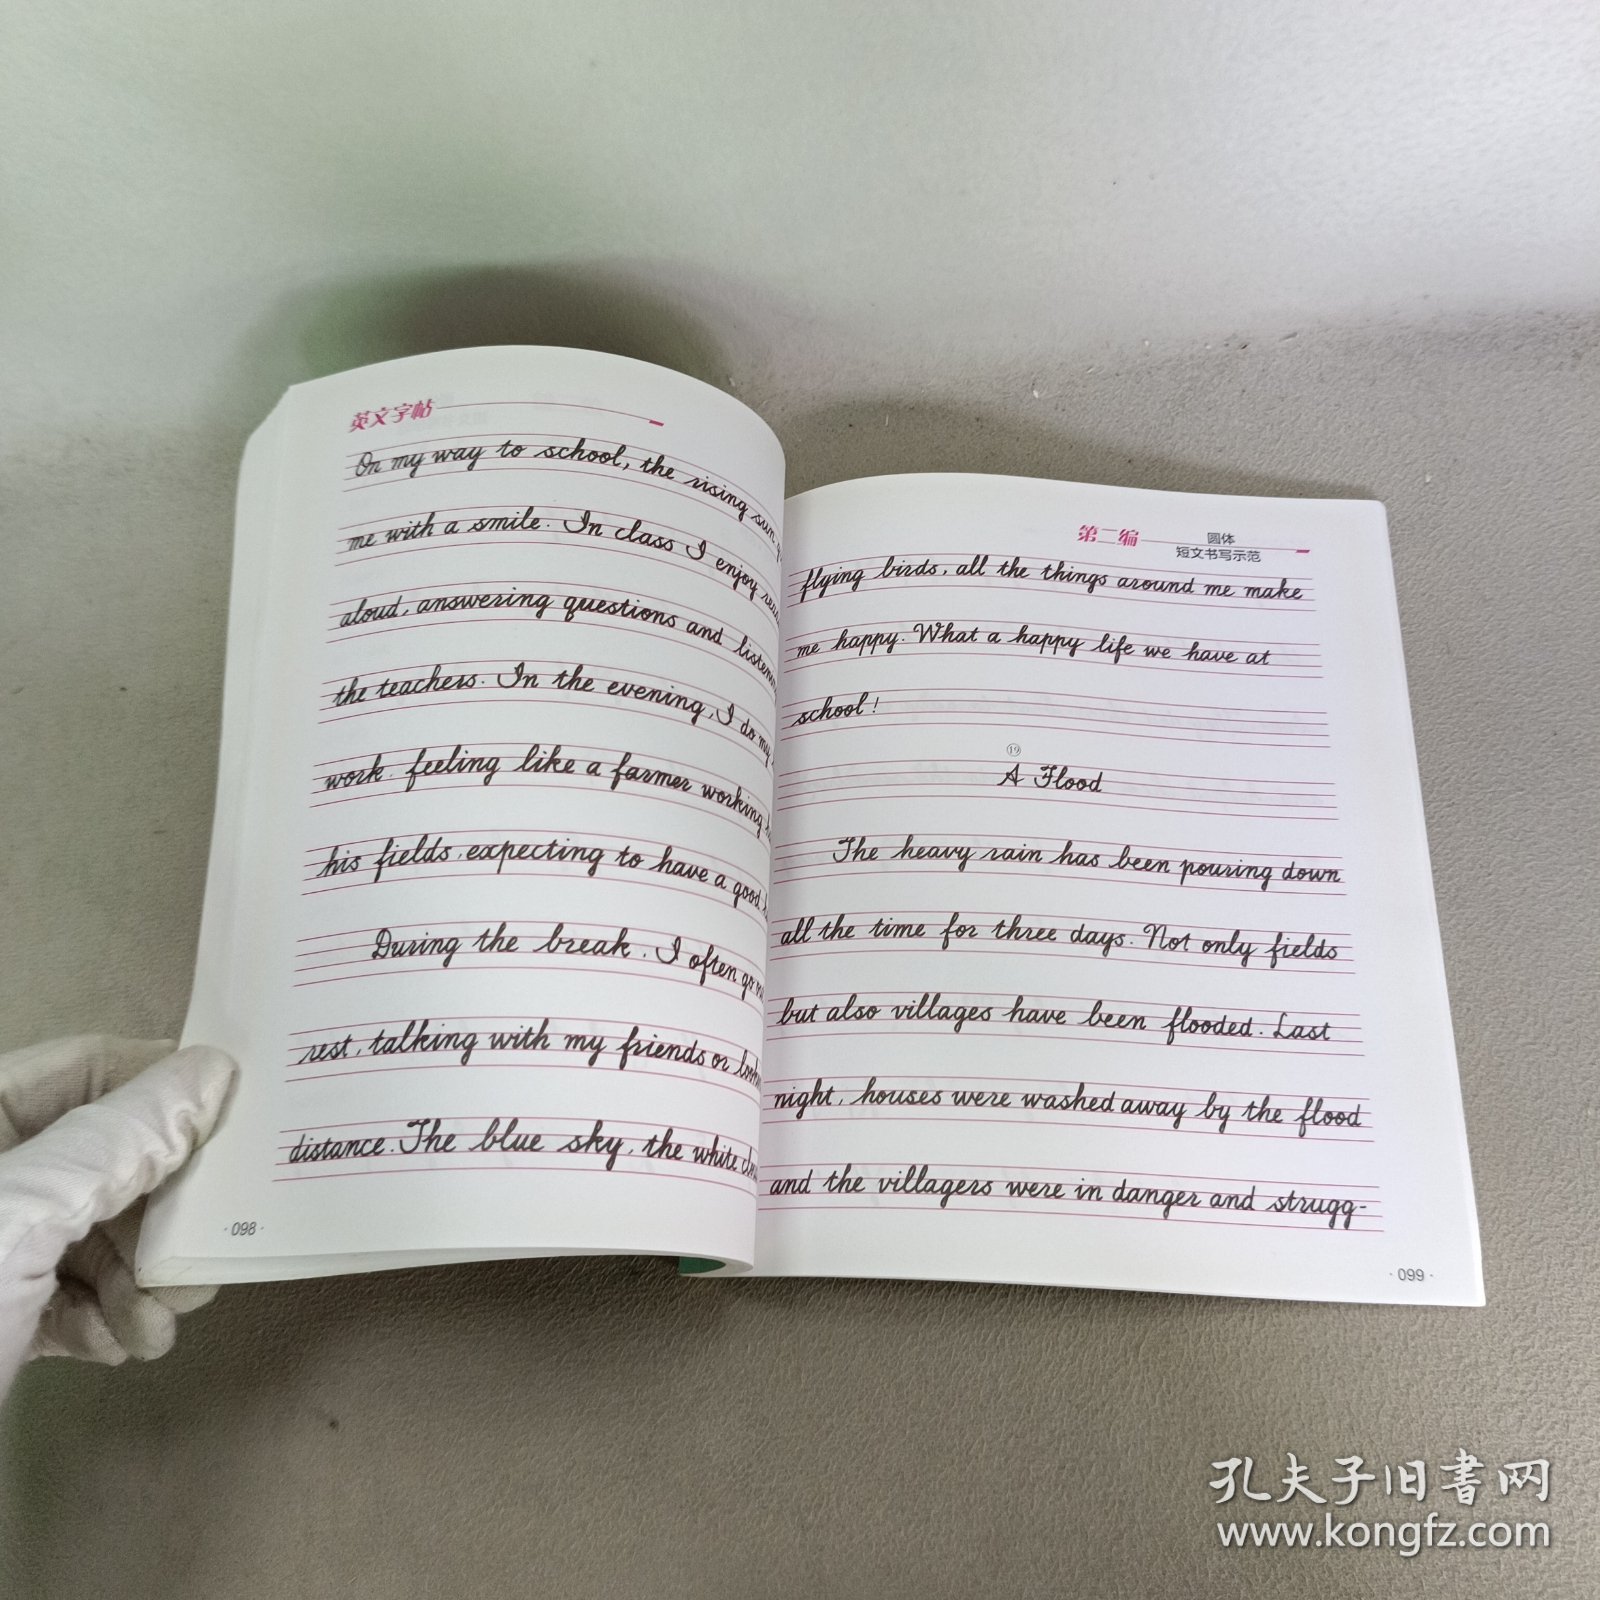 英文字帖
On my way to school, the rising sun
me with a smile. In class I enjoy
aloud, answering questions and
the teachers. In the evening, I do my
work, feeling like a farmer working
his fields, expecting to have a good
During the break, I often go
rest, talking with my friends or
distance. The blue sky, the white
· 098 ·
第二编 圆体
短文书写示范
flying birds, all the things around me make
me happy. What a happy life we have at
school!
⑲
A Flood
The heavy rain has been pouring down
all the time for three days. Not only fields
but also villages have been flooded. Last
night, houses were washed away by the flood
and the villagers were in danger and strugg-
· 099 ·
孔夫子旧书网
www.kongfz.com